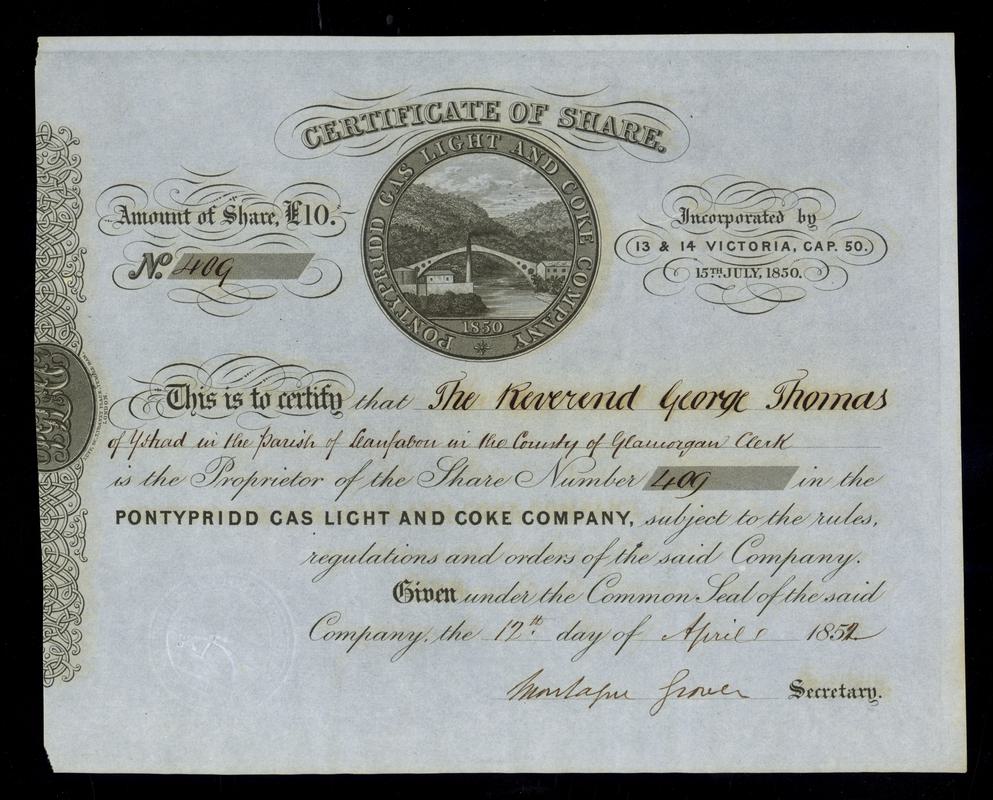 CERTIFICATE OF SHARE.
PONTYPRIDD GAS LIGHT AND COKE COMPANY
1850
Amount of Share, £10.
No. 409
Incorporated by
13 & 14 VICTORIA, CAP. 50.
15TH JULY, 1850.
This is to certify that The Reverend George Thomas
of Ystrad in the Parish of Llanfabon in the County of Glamorgan Clerk
is the Proprietor of the Share Number 409 in the
PONTYPRIDD GAS LIGHT AND COKE COMPANY, subject to the rules,
regulations and orders of the said Company.
Given under the Common Seal of the said
Company, the 12th day of April 1852
Montague Grover Secretary.
LONDON.